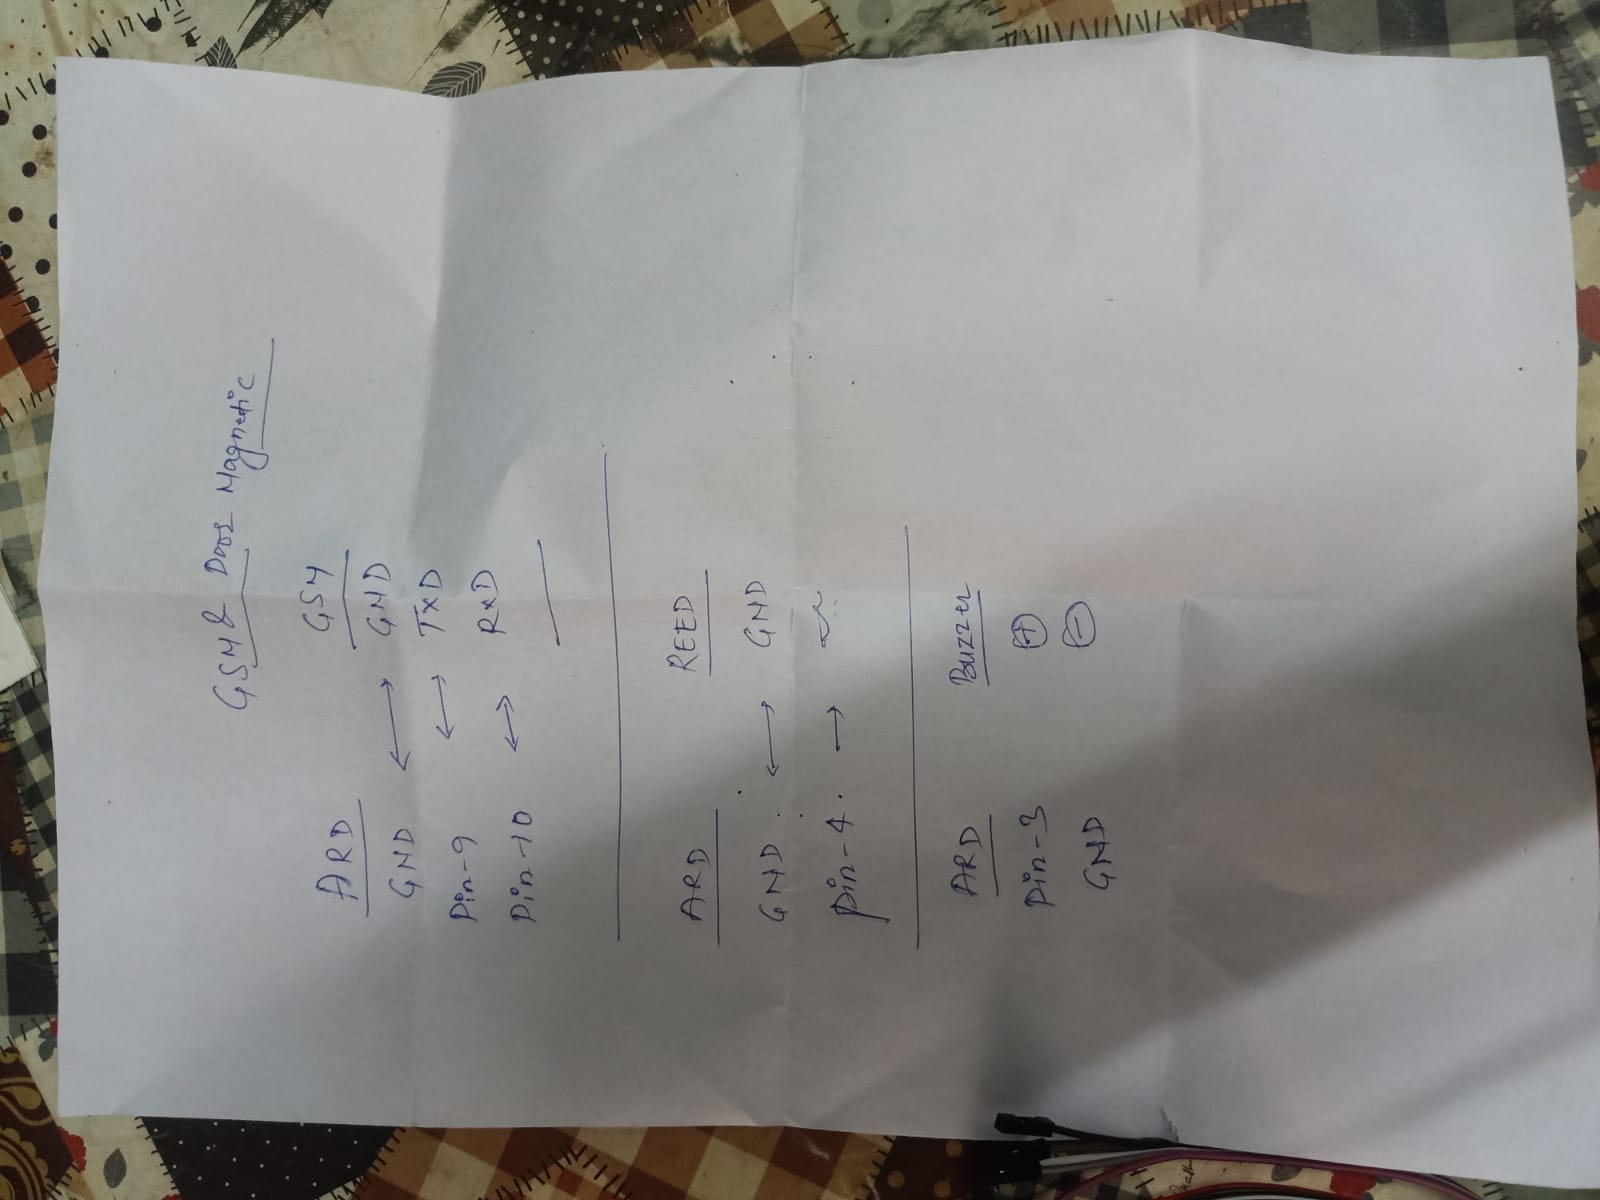 GSM & Door Magnetic
ARD GSM
GND ⟷ GND
Pin-9 ⟷ TXD
Pin-10 ⟷ RXD
ARD REED
GND ⟷ GND
Pin-4 →
ARD Buzzer
Pin-3 +
GND -